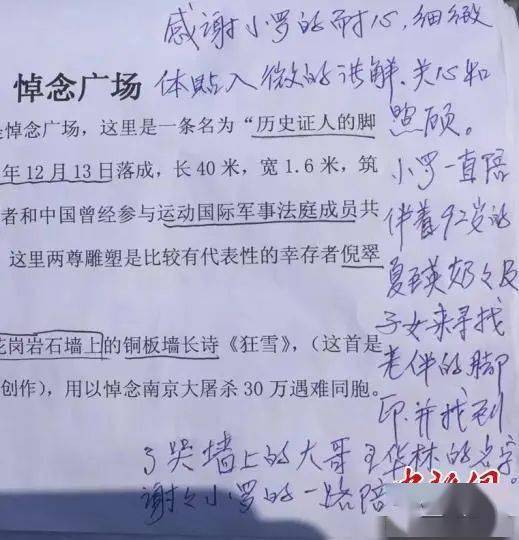 感谢小罗的耐心,细微
悼念广场
体贴入微的讲解、关心和
照顾。
是悼念广场,这里是一条名为“历史证人的脚
年12月13日落成,长40米,宽1.6米,筑
小罗一直陪
者和中国曾经参与运动国际军事法庭成员共
伴着92岁的
这里两尊雕塑是比较有代表性的幸存者倪翠
夏 英奶々及
子女来寻找
花岗岩石墙上的铜板墙长诗《狂雪》,(这首是
老伴的脚
创作),用以悼念南京大屠杀30万遇难同胞。
印并找到
了哭墙上的大哥王华林的名字。
谢々小罗的一路陪